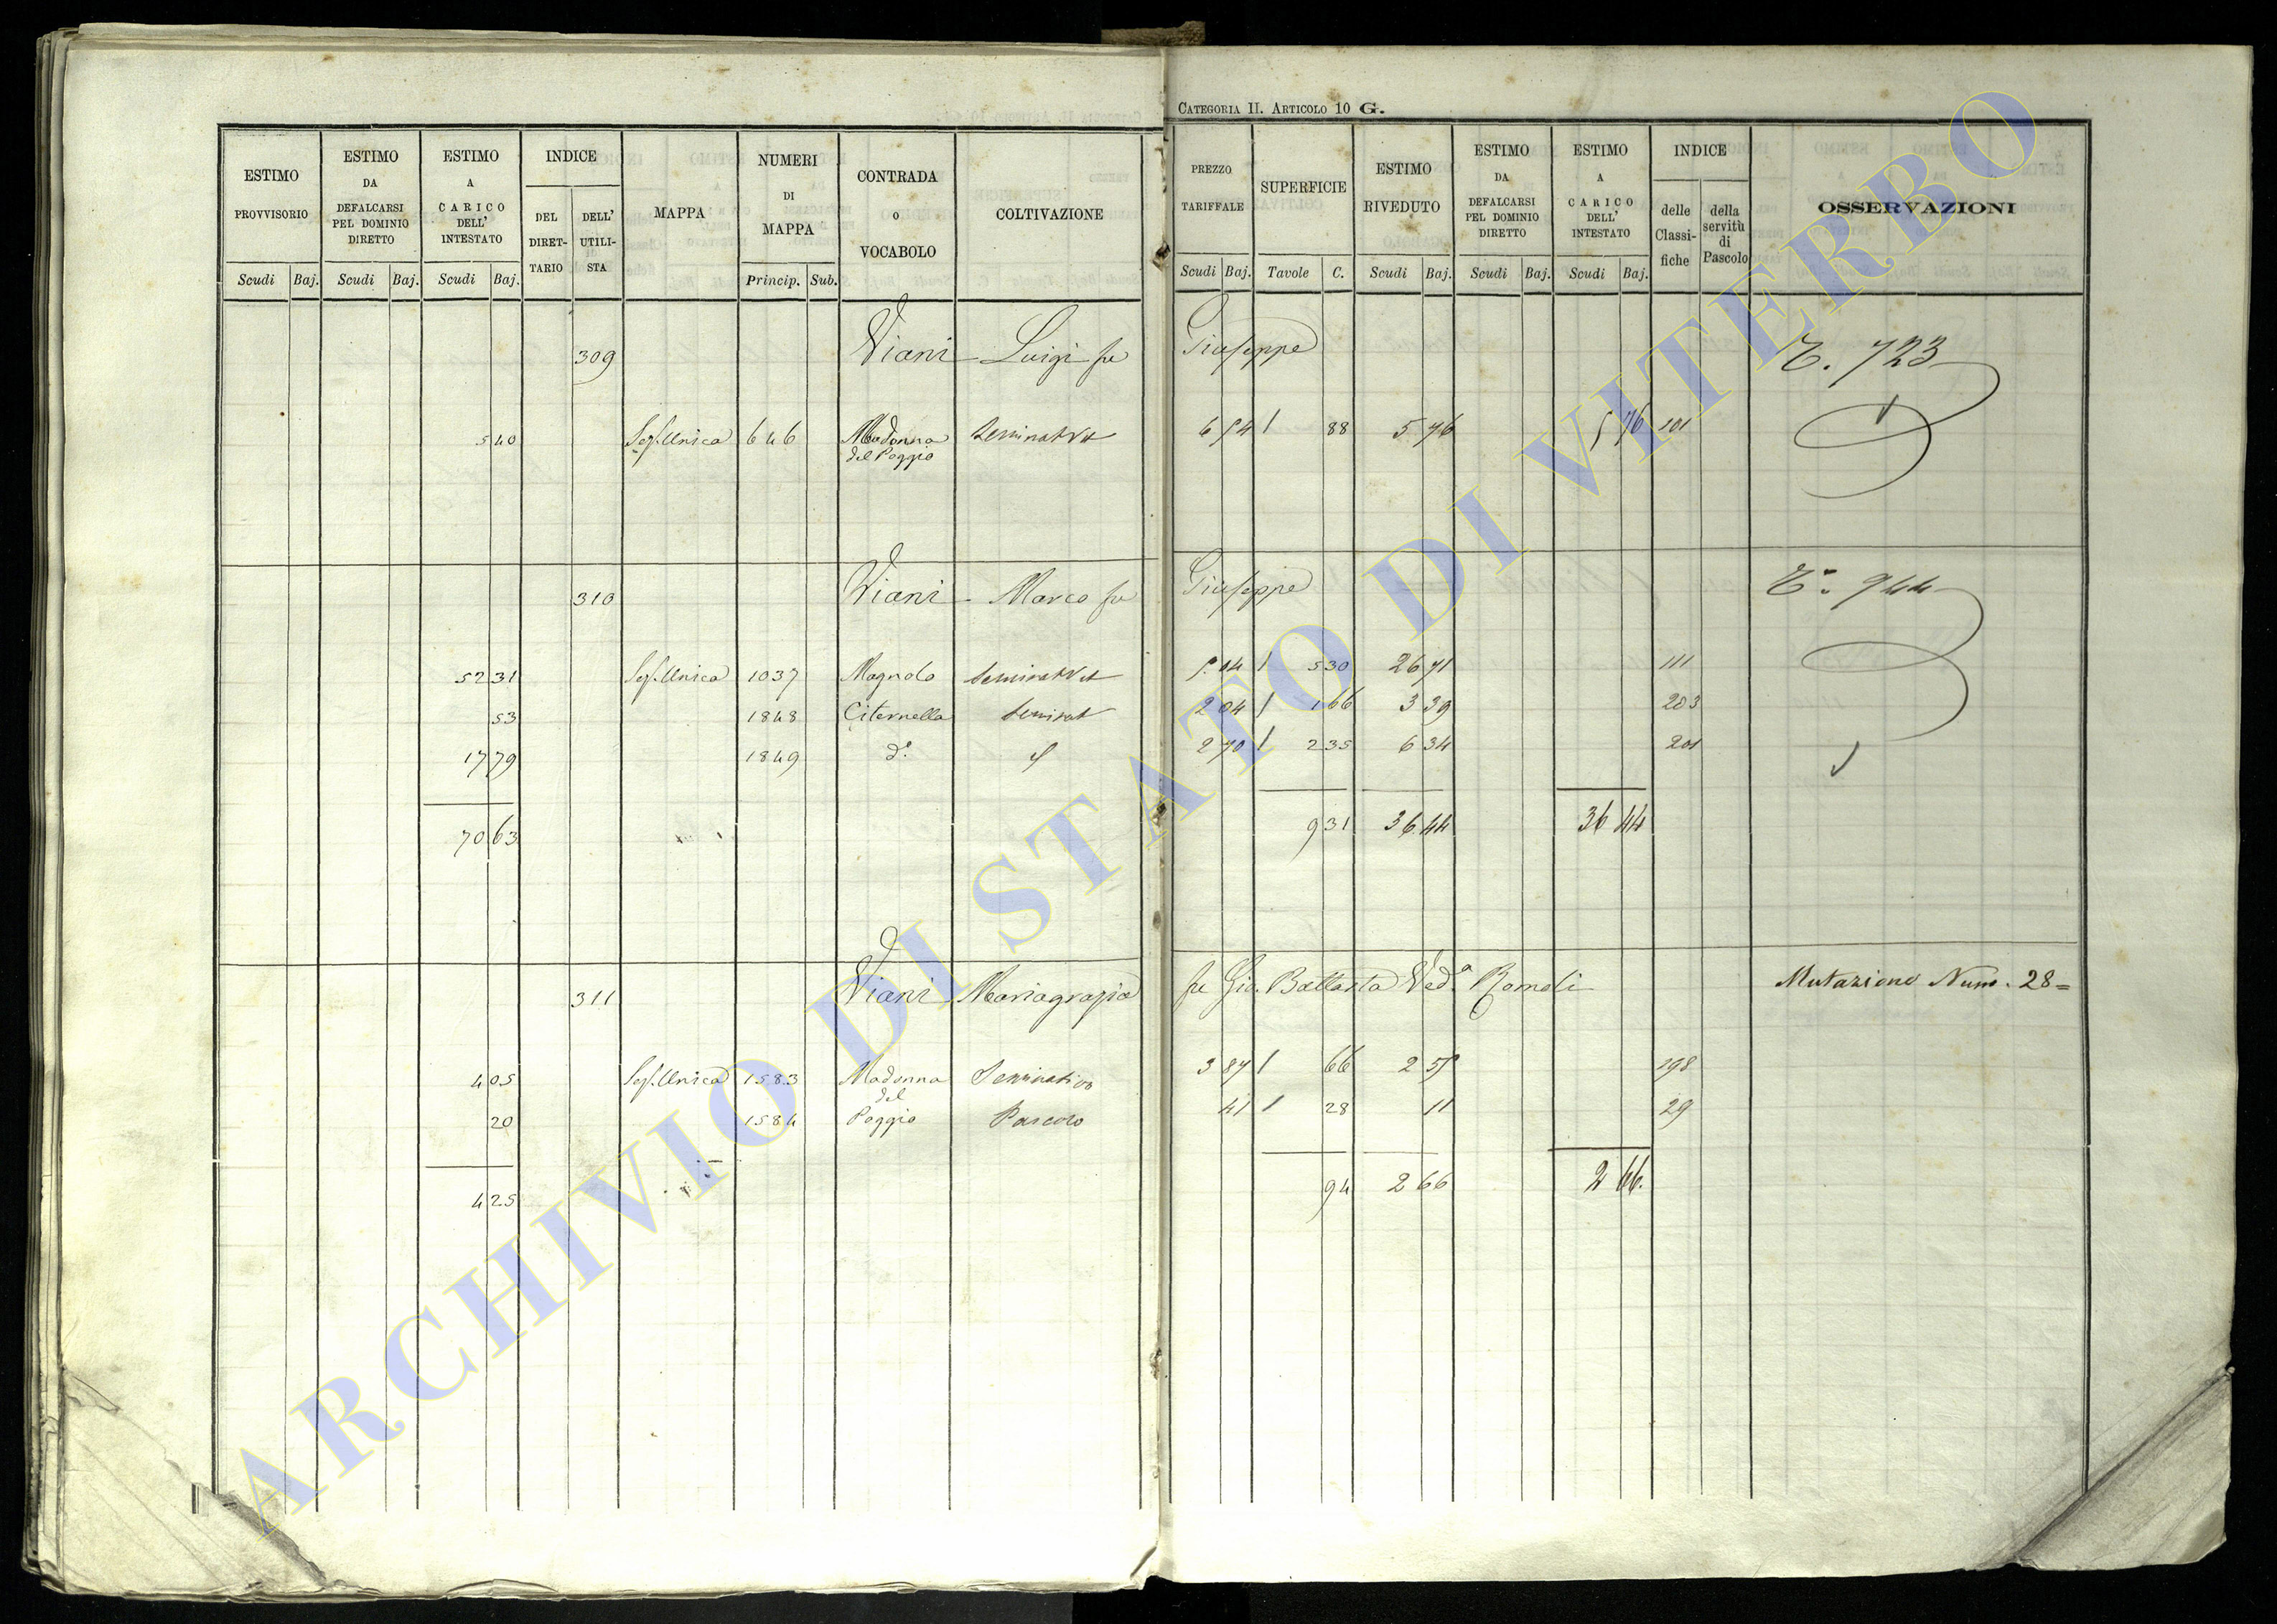 CATEGORIA II. ARTICOLO 10 G.
ESTIMO PROVVISORIO | ESTIMO DA DEFALCARSI PEL DOMINIO DIRETTO | ESTIMO A CARICO DELL' INTESTATO | INDICE | MAPPA | NUMERI DI MAPPA | CONTRADA O VOCABOLO | COLTIVAZIONE | PREZZO TARIFFALE | SUPERFICIE | ESTIMO RIVEDUTO | ESTIMO DA DEFALCARSI PEL DOMINIO DIRETTO | ESTIMO A CARICO DELL' INTESTATO | INDICE | OSSERVAZIONI
DEL DIRETTARIO | DELL' UTILISTA | delle Classifiche | della servitù di Pascolo
Scudi | Baj. | Scudi | Baj. | Scudi | Baj. | Princip. | Sub. | Scudi | Baj. | Tavole | C. | Scudi | Baj. | Scudi | Baj. | Scudi | Baj.
309 Viani Luigi fu Giuseppe 723
5 40 Sez. Unica 646 Madonna del Poggio Seminat Vit 6 54 1 88 5 76 5 76 101
310 Viani Marco fu Giuseppe 944
52 31 Sez. Unica 1037 Magnolo Seminat Vit 5 04 1 5 30 26 71 111
53 1848 Citernella Seminat 2 04 1 1 66 3 39 203
17 79 1849 do 2 70 1 2 35 6 34 201
70 63 9 31 36 44 36 44
311 Viani Mariagrazia fu Gio. Battista Ved.a Romoli Mutazione Num. 28=
4 05 Sez. Unica 1583 Madonna del Seminativo 3 87 1 66 2 55 198
20 1584 Poggio Pascolo 41 1 28 11 29
4 25 94 2 66 2 66.
ARCHIVIO DI STATO DI VITERBO